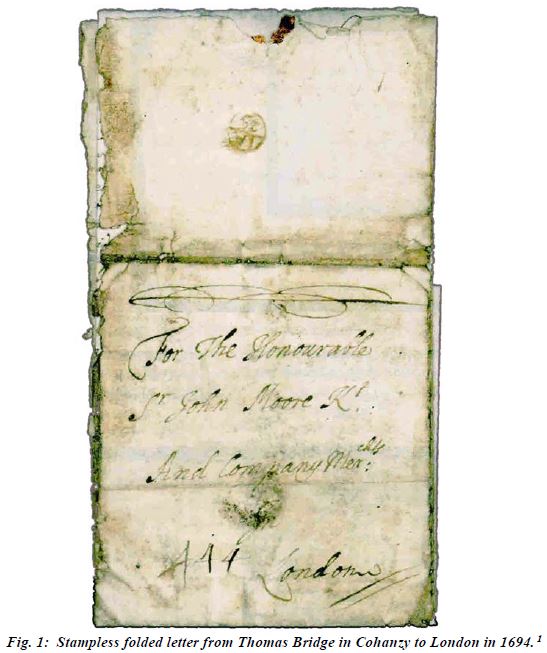 For The Honourable
Sr John Moore Kt
And Company Merchts
London
Fig. 1: Stampless folded letter from Thomas Bridge in Cohanzy to London in 1694.1